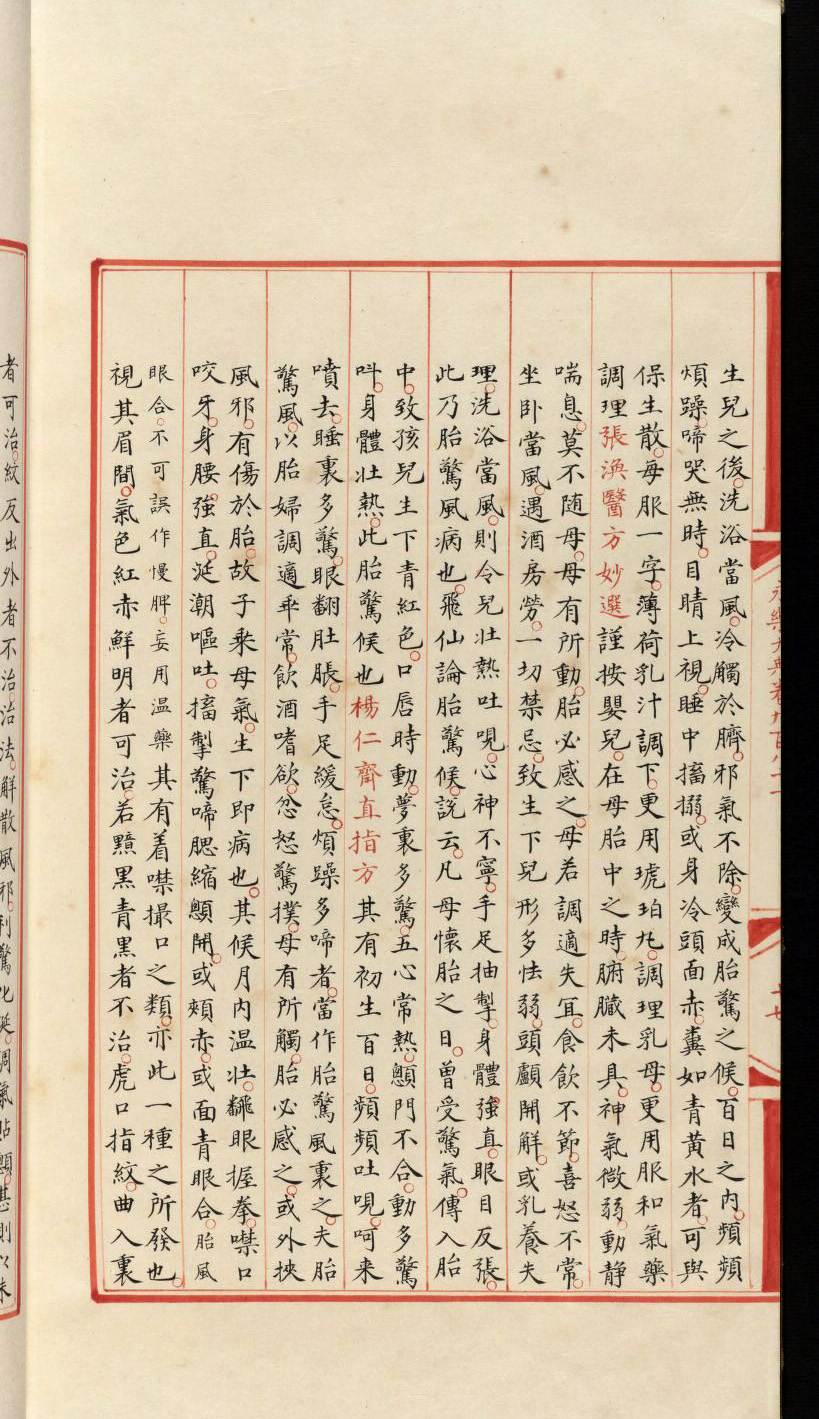 永樂大典卷九百八十一
十七
生兒之後。洗浴當風。冷觸於臍。邪氣不除。變成胎驚之候。百日之内。頻頻
煩躁。啼哭無時。目睛上視。睡中搐搦。或身冷頭面赤。糞如青黄水者。可與
保生散。每服一字。薄荷乳汁調下。更用琥珀丸。調理乳母。更用服和氣藥
調理張渙醫方妙選謹按嬰兒。在母胎中之時。腑臟未具。神氣微弱。動静
喘息。莫不随母。母有所動。胎必感之。母若調適失宜。食飲不節。喜怒不常。
坐卧當風。遇酒房勞。一切禁忌。致生下兒形多怯弱。頭顱開解。或乳養失
理。洗浴當風。則令兒壯熱吐哯。心神不寧。手足抽掣。身體强直。眼目反張。
此乃胎驚風病也。飛仙論胎驚候。説云。凡母懷胎之日。曾受驚氣。傳入胎
中。致孩兒生下青紅色。口唇時動。夢裏多驚。五心常熱。顖門不合。動多驚
呌。身體壯熱。此胎驚候也楊仁齋直指方其有初生百日。頻頻吐哯。呵来
噴去。睡裏多驚。眼翻肚脹。手足緩怠。煩躁多啼者。當作胎驚風裏之。夫胎
驚風。以胎婦調適乖常。飲酒嗜欲。忿怒驚撲。母有所觸。胎必感之。或外挾
風邪。有傷於胎。故子乘母氣。生下即病也。其候月内温壯。翻眼握拳。噤口
咬牙。身腰强直。涎潮嘔吐。搐掣驚啼腮縮顖開。或頰赤。或面青眼合。胎風
眼合。不可誤作慢脾。妄用温藥其有着噤撮口之類。亦此一種之所發也。
視其眉間。氣色紅赤鮮明者可治。若黯黒青黒者不治。虎口指紋。曲入裏
者可治。紋反出外者不治治法。解散風邪。利驚化涎。調氣貼顖。甚則以朱